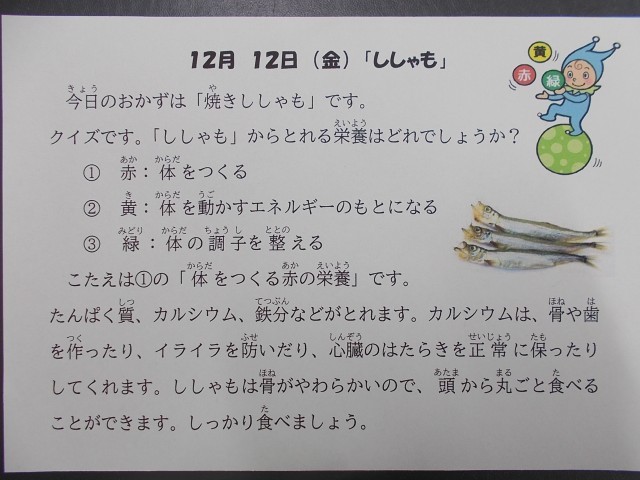 12月 12日（金）「ししゃも」
黄
赤
緑
今日のおかずは「焼きししゃも」です。
クイズです。「ししゃも」からとれる栄養はどれでしょうか？
① 赤：体をつくる
② 黄：体を動かすエネルギーのもとになる
③ 緑：体の調子を整える
こたえは①の「体をつくる赤の栄養」です。
たんぱく質、カルシウム、鉄分などがとれます。カルシウムは、骨や歯
を作ったり、イライラを防いだり、心臓のはたらきを正常に保ったり
してくれます。ししゃもは骨がやわらかいので、頭から丸ごと食べる
ことができます。しっかり食べましょう。